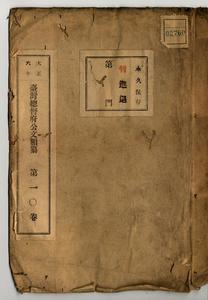 02760
永久保存
判進退
第 門
大正
六年
臺灣總督府公文類纂 第一〇卷